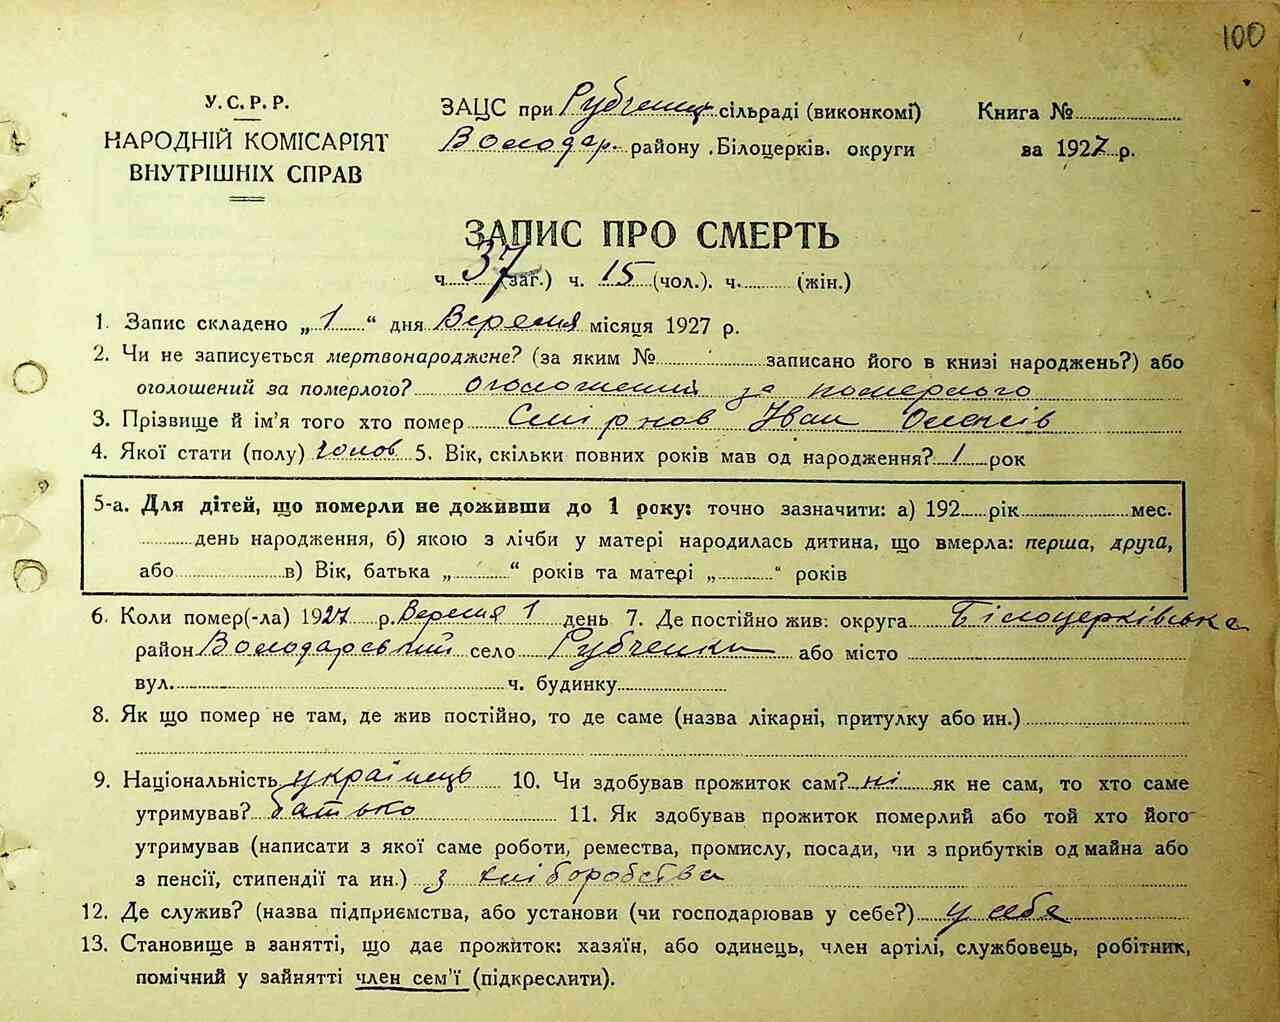 100
У.С.Р.Р.
НАРОДНІЙ КОМІСАРІЯТ
ВНУТРІШНІХ СПРАВ
ЗАЦС при Рубченец. сільраді (виконкомі)
Володар. району Білоцерків. округи
Книга №
за 1927 р.
ЗАПИС ПРО СМЕРТЬ
ч. 37 (заг.) ч. 15 (чол.). ч. (жін.)
1. Запис складено „ 1 “ дня Вересня місяця 1927 р.
2. Чи не записується мертвонароджене? (за яким № записано його в книзі народжень?) або
оголошений за померлого? оголошений за померлого
3. Прізвище й ім'я того хто помер Смірнов Іван
4. Якої стати (полу) чолов 5. Вік, скільки повних років мав од народження? 1 рок
5-а. Для дітей, що померли не доживши до 1 року: точно зазначити: а) 192 рік мес.
день народження, б) якою з лічби у матері народилась дитина, що вмерла: перша, друга,
або в) Вік, батька „ “ років та матері „ “ років
6. Коли помер(-ла) 1927 р. Вересня 1 день 7. Де постійно жив: округа Білоцерківська
район Володарський село Рубченки або місто
вул. ч. будинку
8. Як що помер не там, де жив постійно, то де саме (назва лікарні, притулку або ин.)
9. Національність українець 10. Чи здобував прожиток сам? ні як не сам, то хто саме
утримував? батько 11. Як здобував прожиток померлий або той хто його
утримував (написати з якої саме роботи, ремества, промислу, посади, чи з прибутків од майна або
з пенсії, стипендії та ин.) з хліборобства
12. Де служив? (назва підприємства, або установи (чи господарював у себе?) у себе
13. Становище в занятті, що дає прожиток: хазяїн, або одинець, член артілі, службовець, робітник,
помічний у зайнятті член сем'ї (підкреслити).